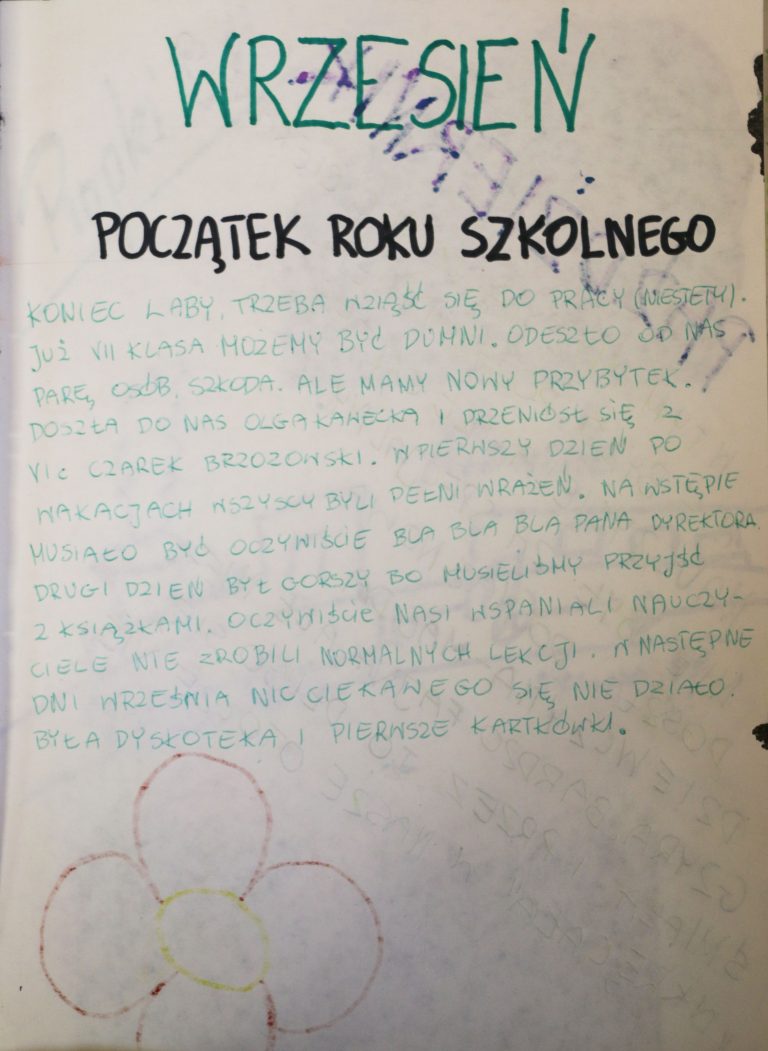 WRZESIEŃ
POCZĄTEK ROKU SZKOLNEGO
KONIEC LABY, TRZEBA WZIĄŚĆ SIĘ DO PRACY (NIESTETY).
JUŻ VII KLASA MOŻEMY BYĆ DUMNI. ODESZŁO OD NAS
PARĘ OSÓB. SZKODA. ALE MAMY NOWY PRZYBYTEK.
DOSZŁA DO NAS OLGA KAWECKA I PRZENIÓSŁ SIĘ Z
VIc CZAREK BRZOZOWSKI. W PIERWSZY DZIEŃ PO
WAKACJACH WSZYSCY BYLI PEŁNI WRAŻEŃ. NA WSTĘPIE
MUSIAŁO BYĆ OCZYWIŚCIE BLA BLA BLA PANA DYREKTORA.
DRUGI DZIEŃ BYŁ GORSZY BO MUSIELIŚMY PRZYJŚĆ
Z KSIĄŻKAMI. OCZYWIŚCIE NASI WSPANIALI NAUCZY-
CIELE NIE ZROBILI NORMALNYCH LEKCJI. W NASTĘPNE
DNI WRZEŚNIA NIC CIEKAWEGO SIĘ NIE DZIAŁO.
BYŁA DYSKOTEKA I PIERWSZE KARTKÓWKI.